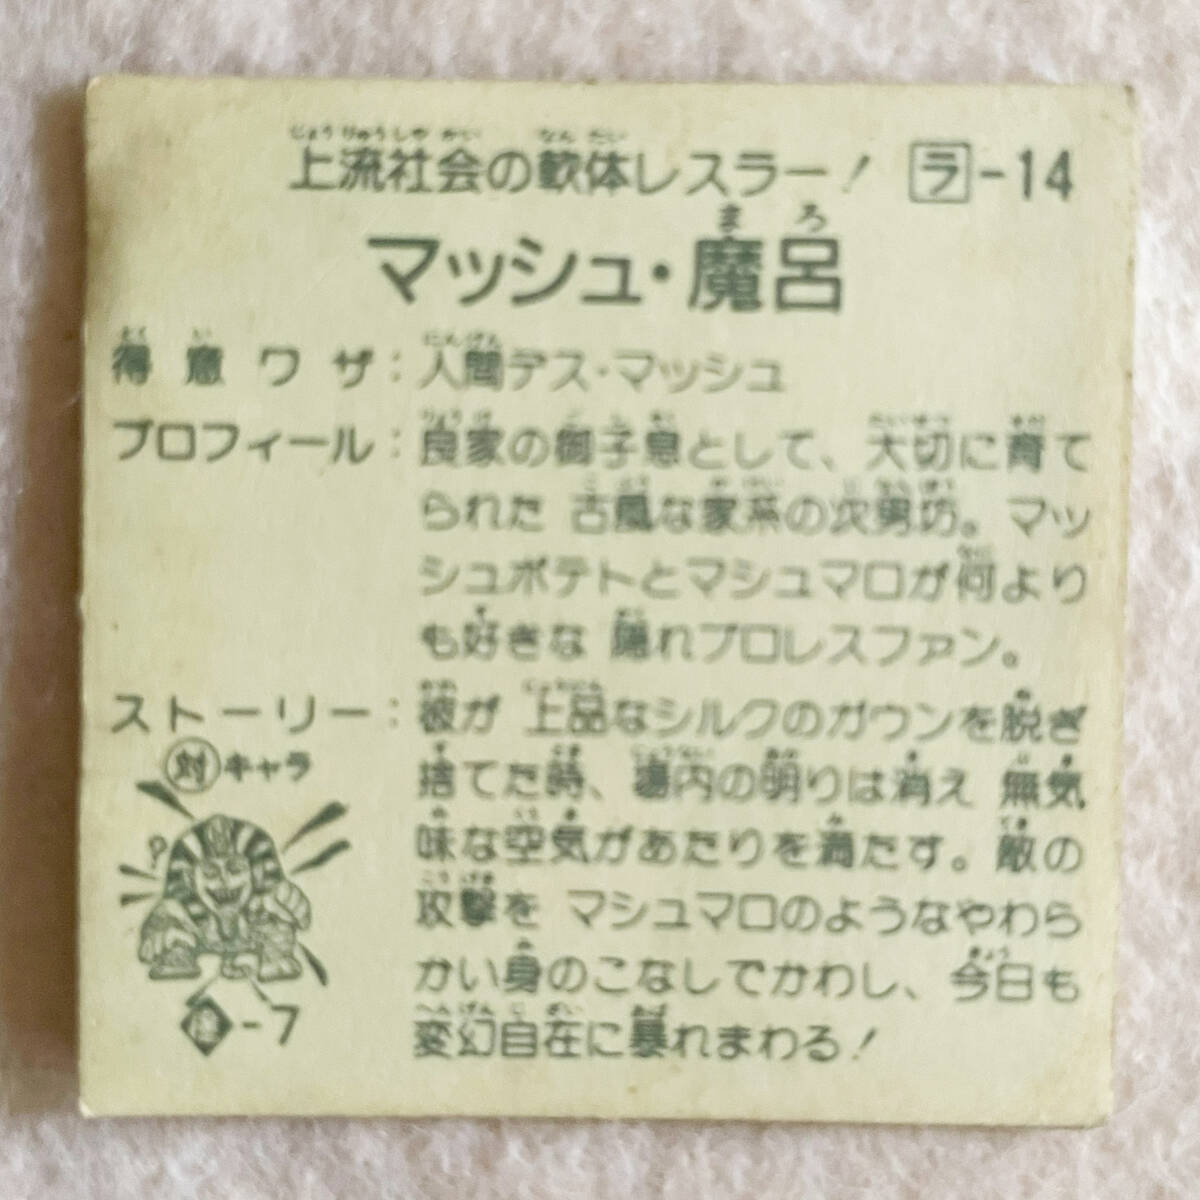 上流社会の軟体レスラー! ラ-14
マッシュ・魔呂
得意ワザ:人間デス・マッシュ
プロフィール:良家の御子息として、大切に育て
られた 古風な家系の次男坊。マッ
シュポテトとマシュマロが何より
も好きな 隠れプロレスファン。
ストーリー:彼が 上品なシルクのガウンを脱ぎ
捨てた時、場内の明りは消え 無気
味な空気があたりを満たす。敵の
攻撃を マシュマロのようなやわら
かい身のこなしでかわし、今日も
変幻自在に暴れまわる!
対キャラ
P
-7